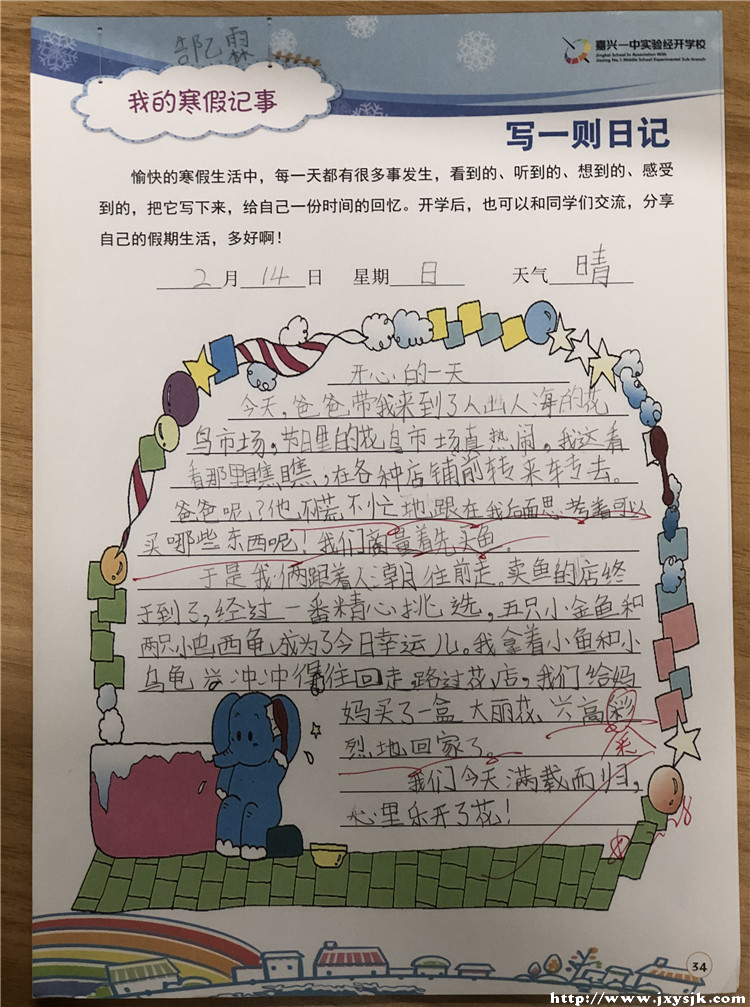 郜乙霖
嘉兴一中实验经开学校
Jiaxing No.1 Middle School Experimental Sub-branch
我的寒假记事
写一则日记
愉快的寒假生活中，每一天都有很多事发生，看到的、听到的、想到的、感受
到的，把它写下来，给自己一份时间的回忆。开学后，也可以和同学们交流，分享
自己的假期生活，多好啊！
2月14日 星期日 天气晴
开心的一天
今天，爸爸带我来到了人山人海的花
鸟市场，节日里的花鸟市场真热闹，我这看
看那里瞧瞧，在各种店铺前转来转去。
爸爸呢？他不慌不忙地跟在我后面思考着可以
买哪些东西呢！我们商量着先买鱼。
于是我俩跟着人潮往前走。卖鱼的店终
于到了，经过一番精心挑选，五只小金鱼和
两只小巴西龟，成为了今日幸运儿。我拿着小鱼和小
乌龟兴冲冲得往回走，路过花店，我们给妈
妈买了一盒大丽花，兴高彩
采
烈地回家了。
我们今天满载而归，
心里乐开了花！
34
http://www.jxysjk.com/